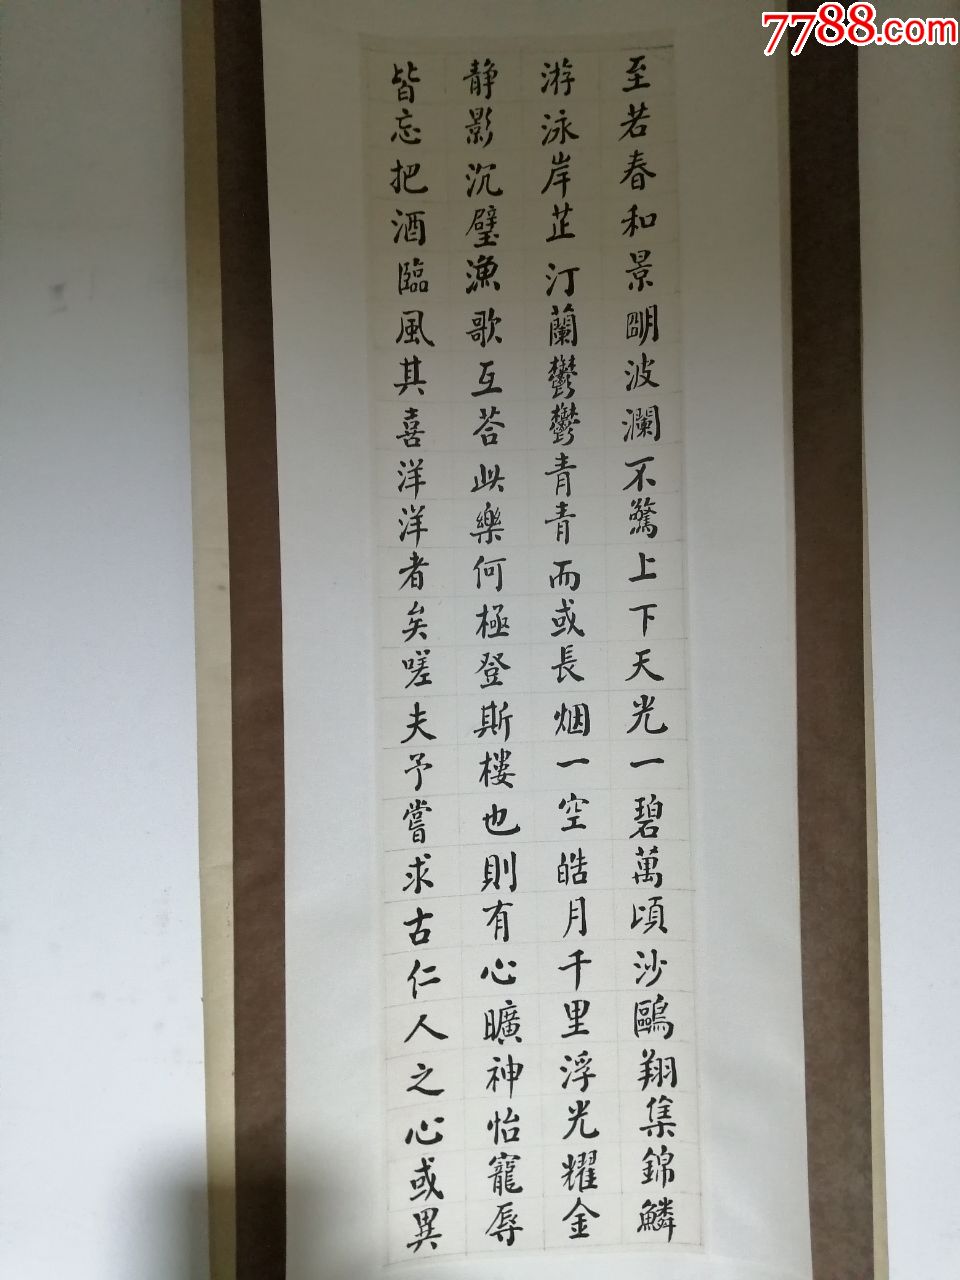 7788.com
至若春和景明波瀾不驚上下天光一碧萬頃沙鷗翔集錦鱗
游泳岸芷汀蘭鬱鬱青青而或長烟一空皓月千里浮光耀金
静影沉璧漁歌互荅此樂何極登斯樓也則有心曠神怡寵辱
皆忘把酒臨風其喜洋洋者矣嗟夫予嘗求古仁人之心或異